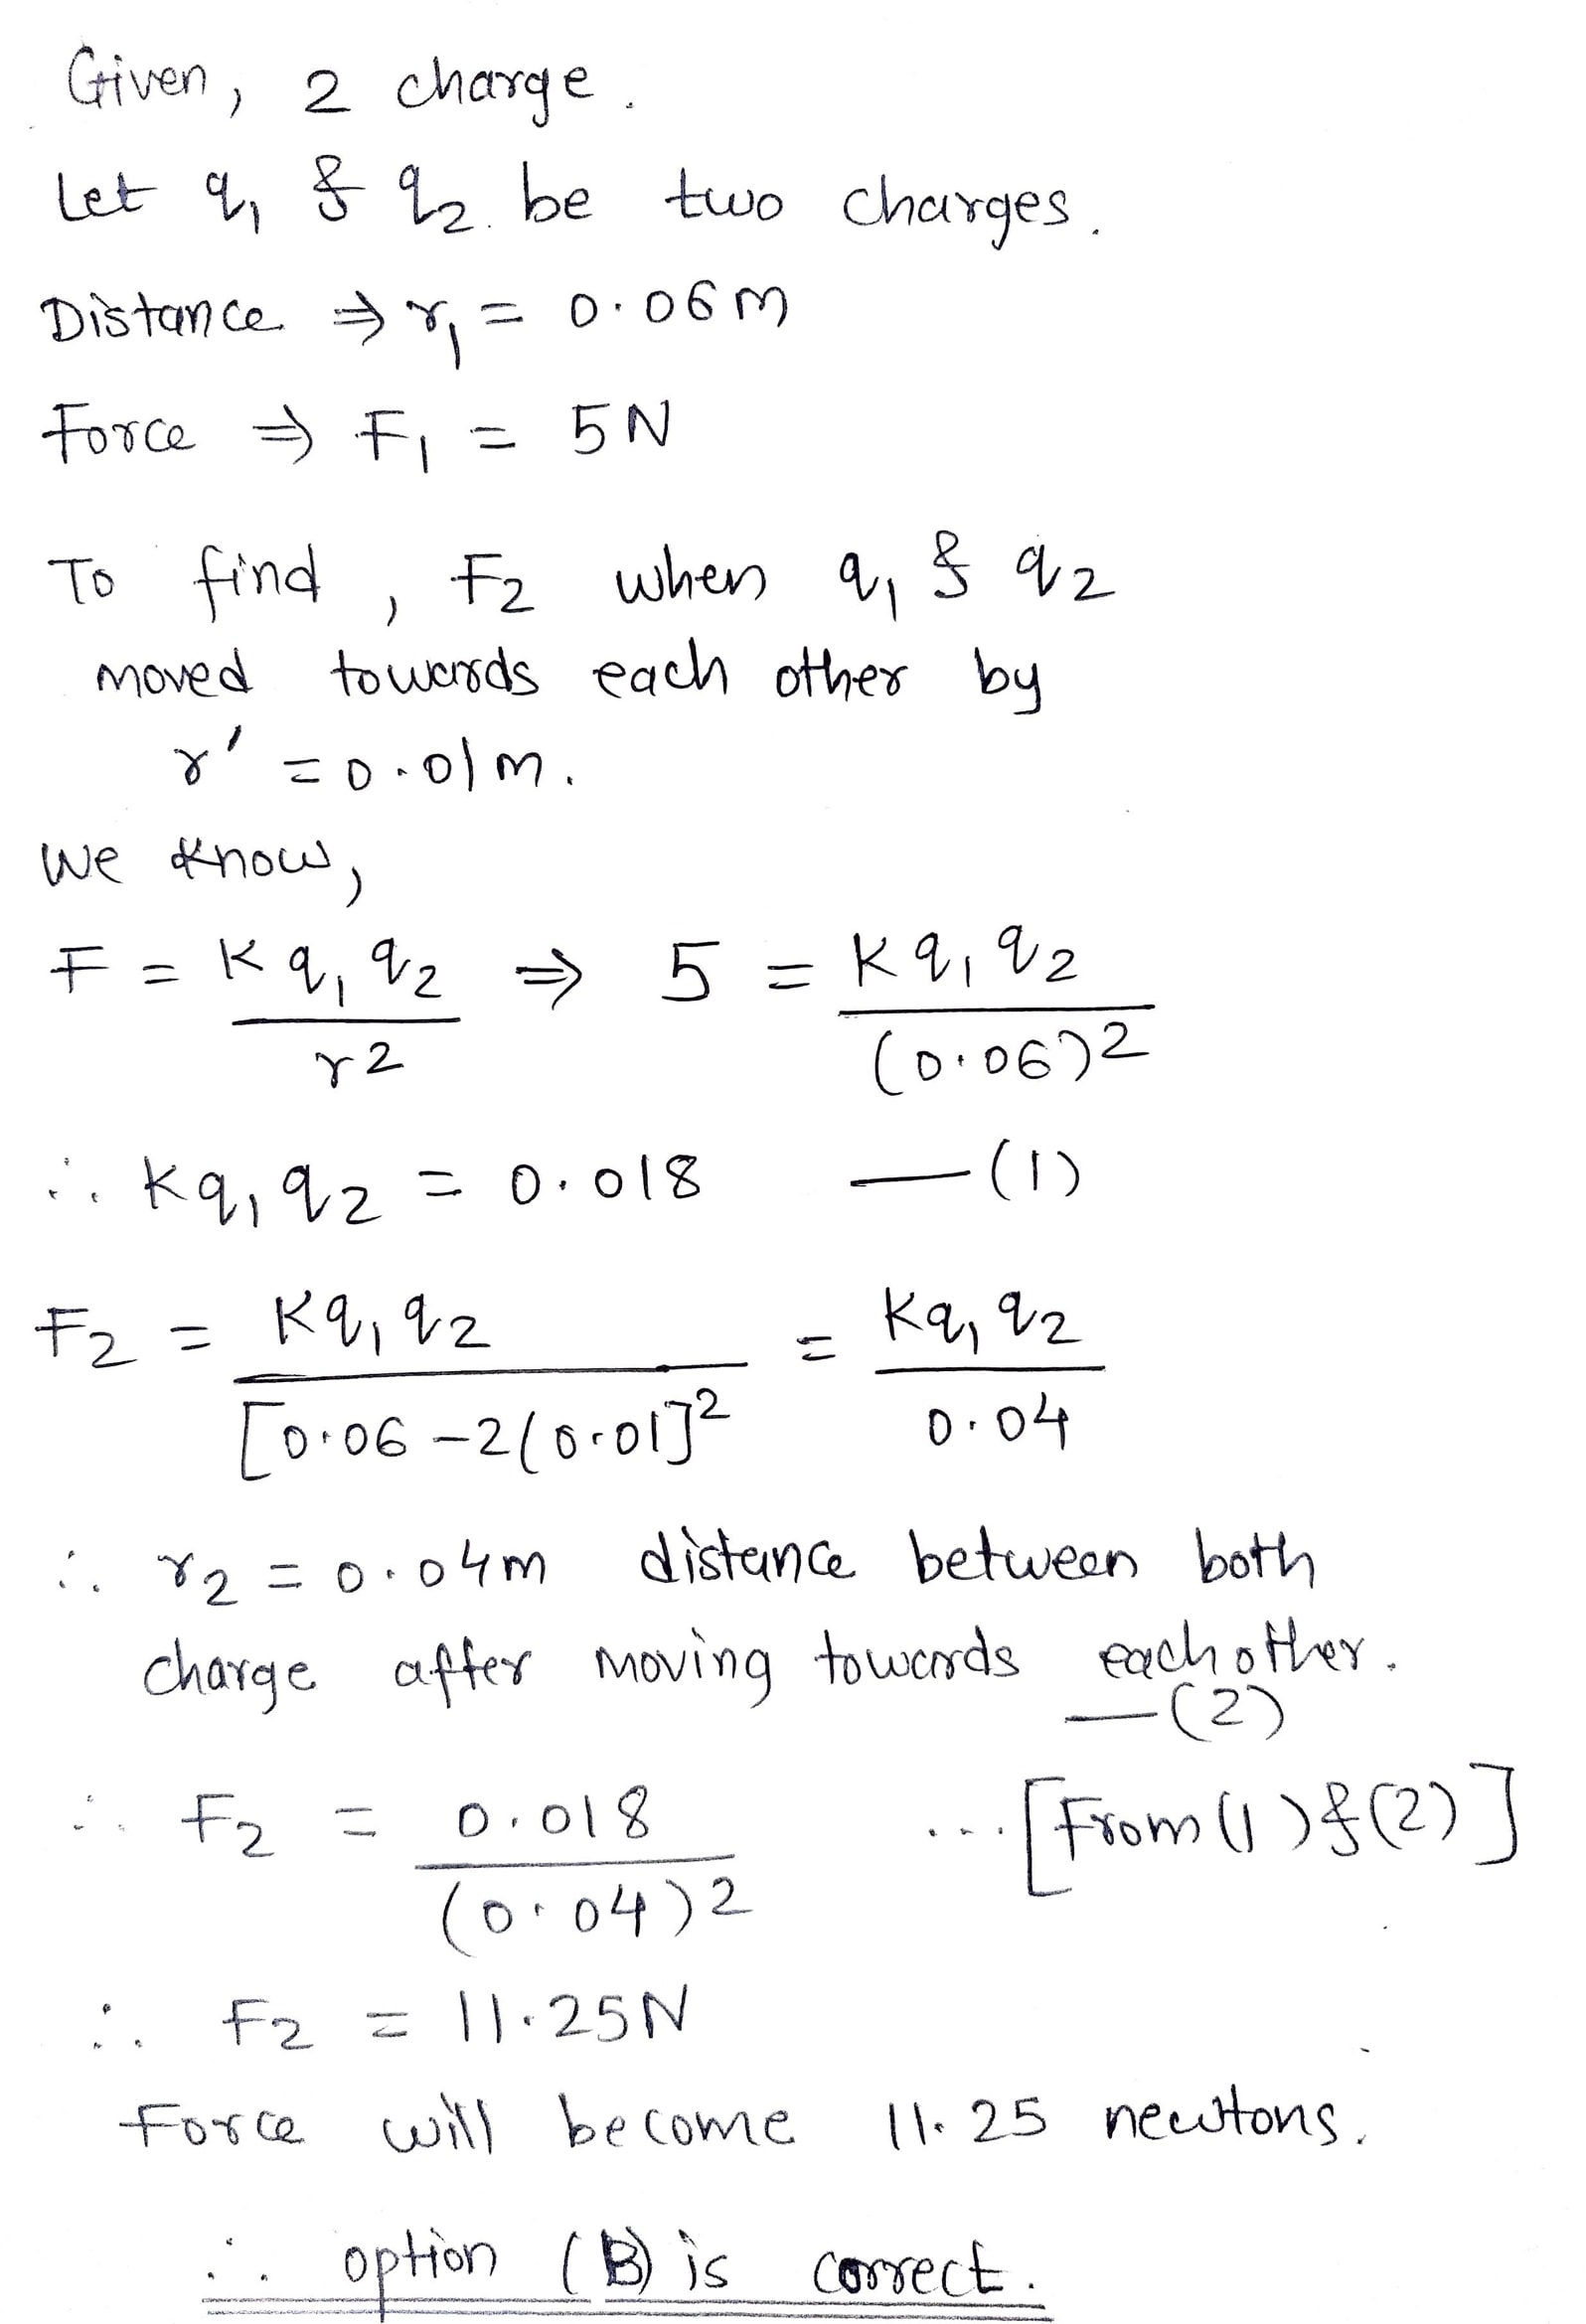 Given, 2 charge.
Let q₁ & q₂ be two charges.
Distance ⇒ r₁ = 0.06m
Force ⇒ F₁ = 5N
To find, F₂ when q₁ & q₂
moved towards each other by
r' = 0.01m.
We know,
F = Kq₁q₂/r² ⇒ 5 = Kq₁q₂/(0.06)²
∴ Kq₁q₂ = 0.018 —(1)
F₂ = Kq₁q₂/[0.06-2(0.01]² = Kq₁q₂/0.04
∴ r₂ = 0.04m distance between both
charge after moving towards each other.
—(2)
∴ F₂ = 0.018/(0.04)² ...[From (1) & (2)]
∴ F₂ = 11.25N
Force will become 11.25 newtons.
∴ option (B) is correct.